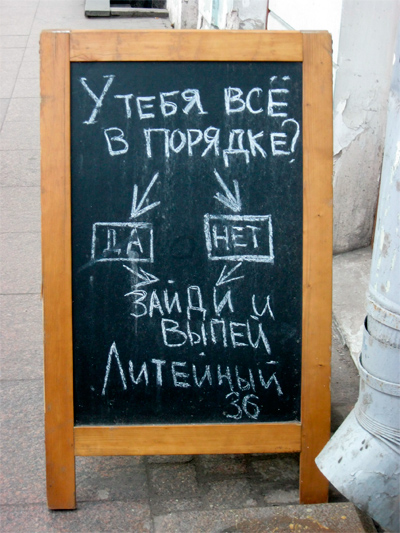 У ТЕБЯ ВСЁ
В ПОРЯДКЕ?
ДА НЕТ
ЗАЙДИ И
ВЫПЕЙ
ЛИТЕЙНЫЙ
36